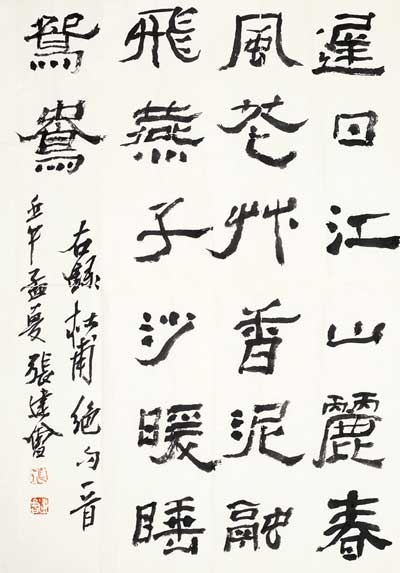 遲日江山麗春
風花艸香泥融
飛燕子沙暖睡
鴛鴦
右錄杜甫絕句一首
壬午孟夏張建會